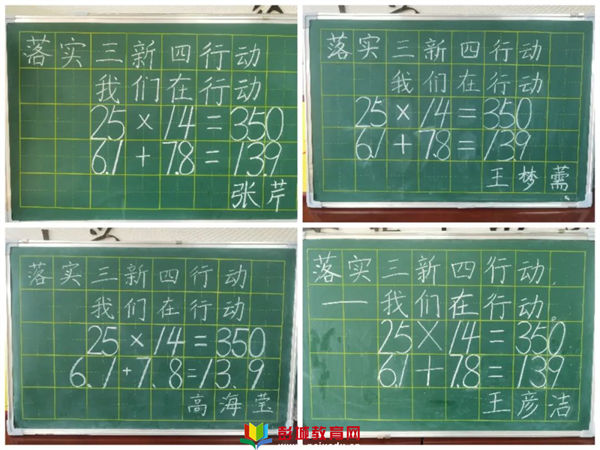 落实三新四行动
我们在行动
25×14=350
6.1+7.8=13.9
张芹
落实三新四行动
我们在行动
25×14=350
6.1+7.8=13.9
王梦
落实三新四行动
我们在行动
25×14=350
6.1+7.8=13.9
高海莹
落实三新四行动
——我们在行动。
25×14=350
6.1+7.8=13.9
王彦洁
彭城教育网